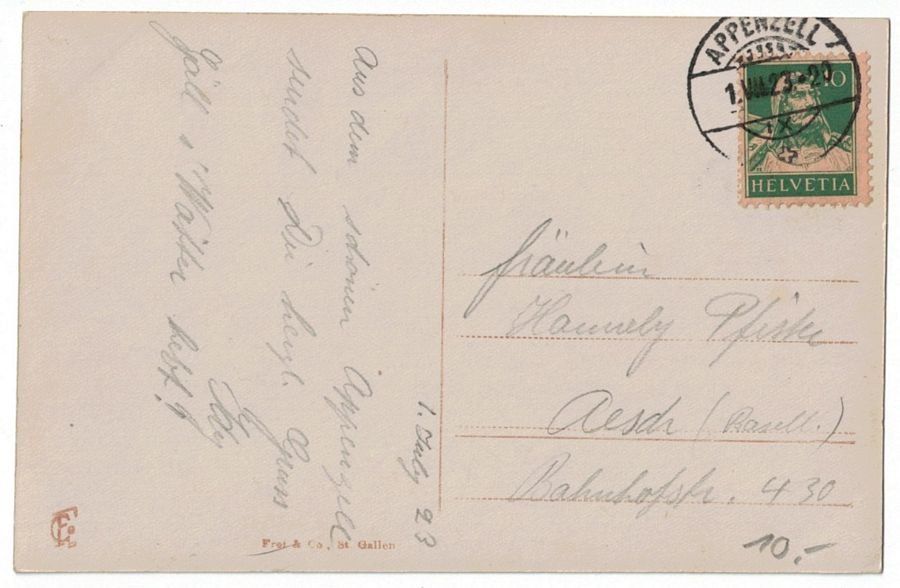 APPENZELL
1.VII.23.-20
10
HELVETIA
1. July 23
Aus dem schönen Appenzell
sendet Dir herzl. Gruss
Gäll s'Wätter hebt!
Fräulein
Hannely Pfister
Aesch (Basell.)
Bahnhofstr. 430
10.-
Frei & Co., St. Gallen